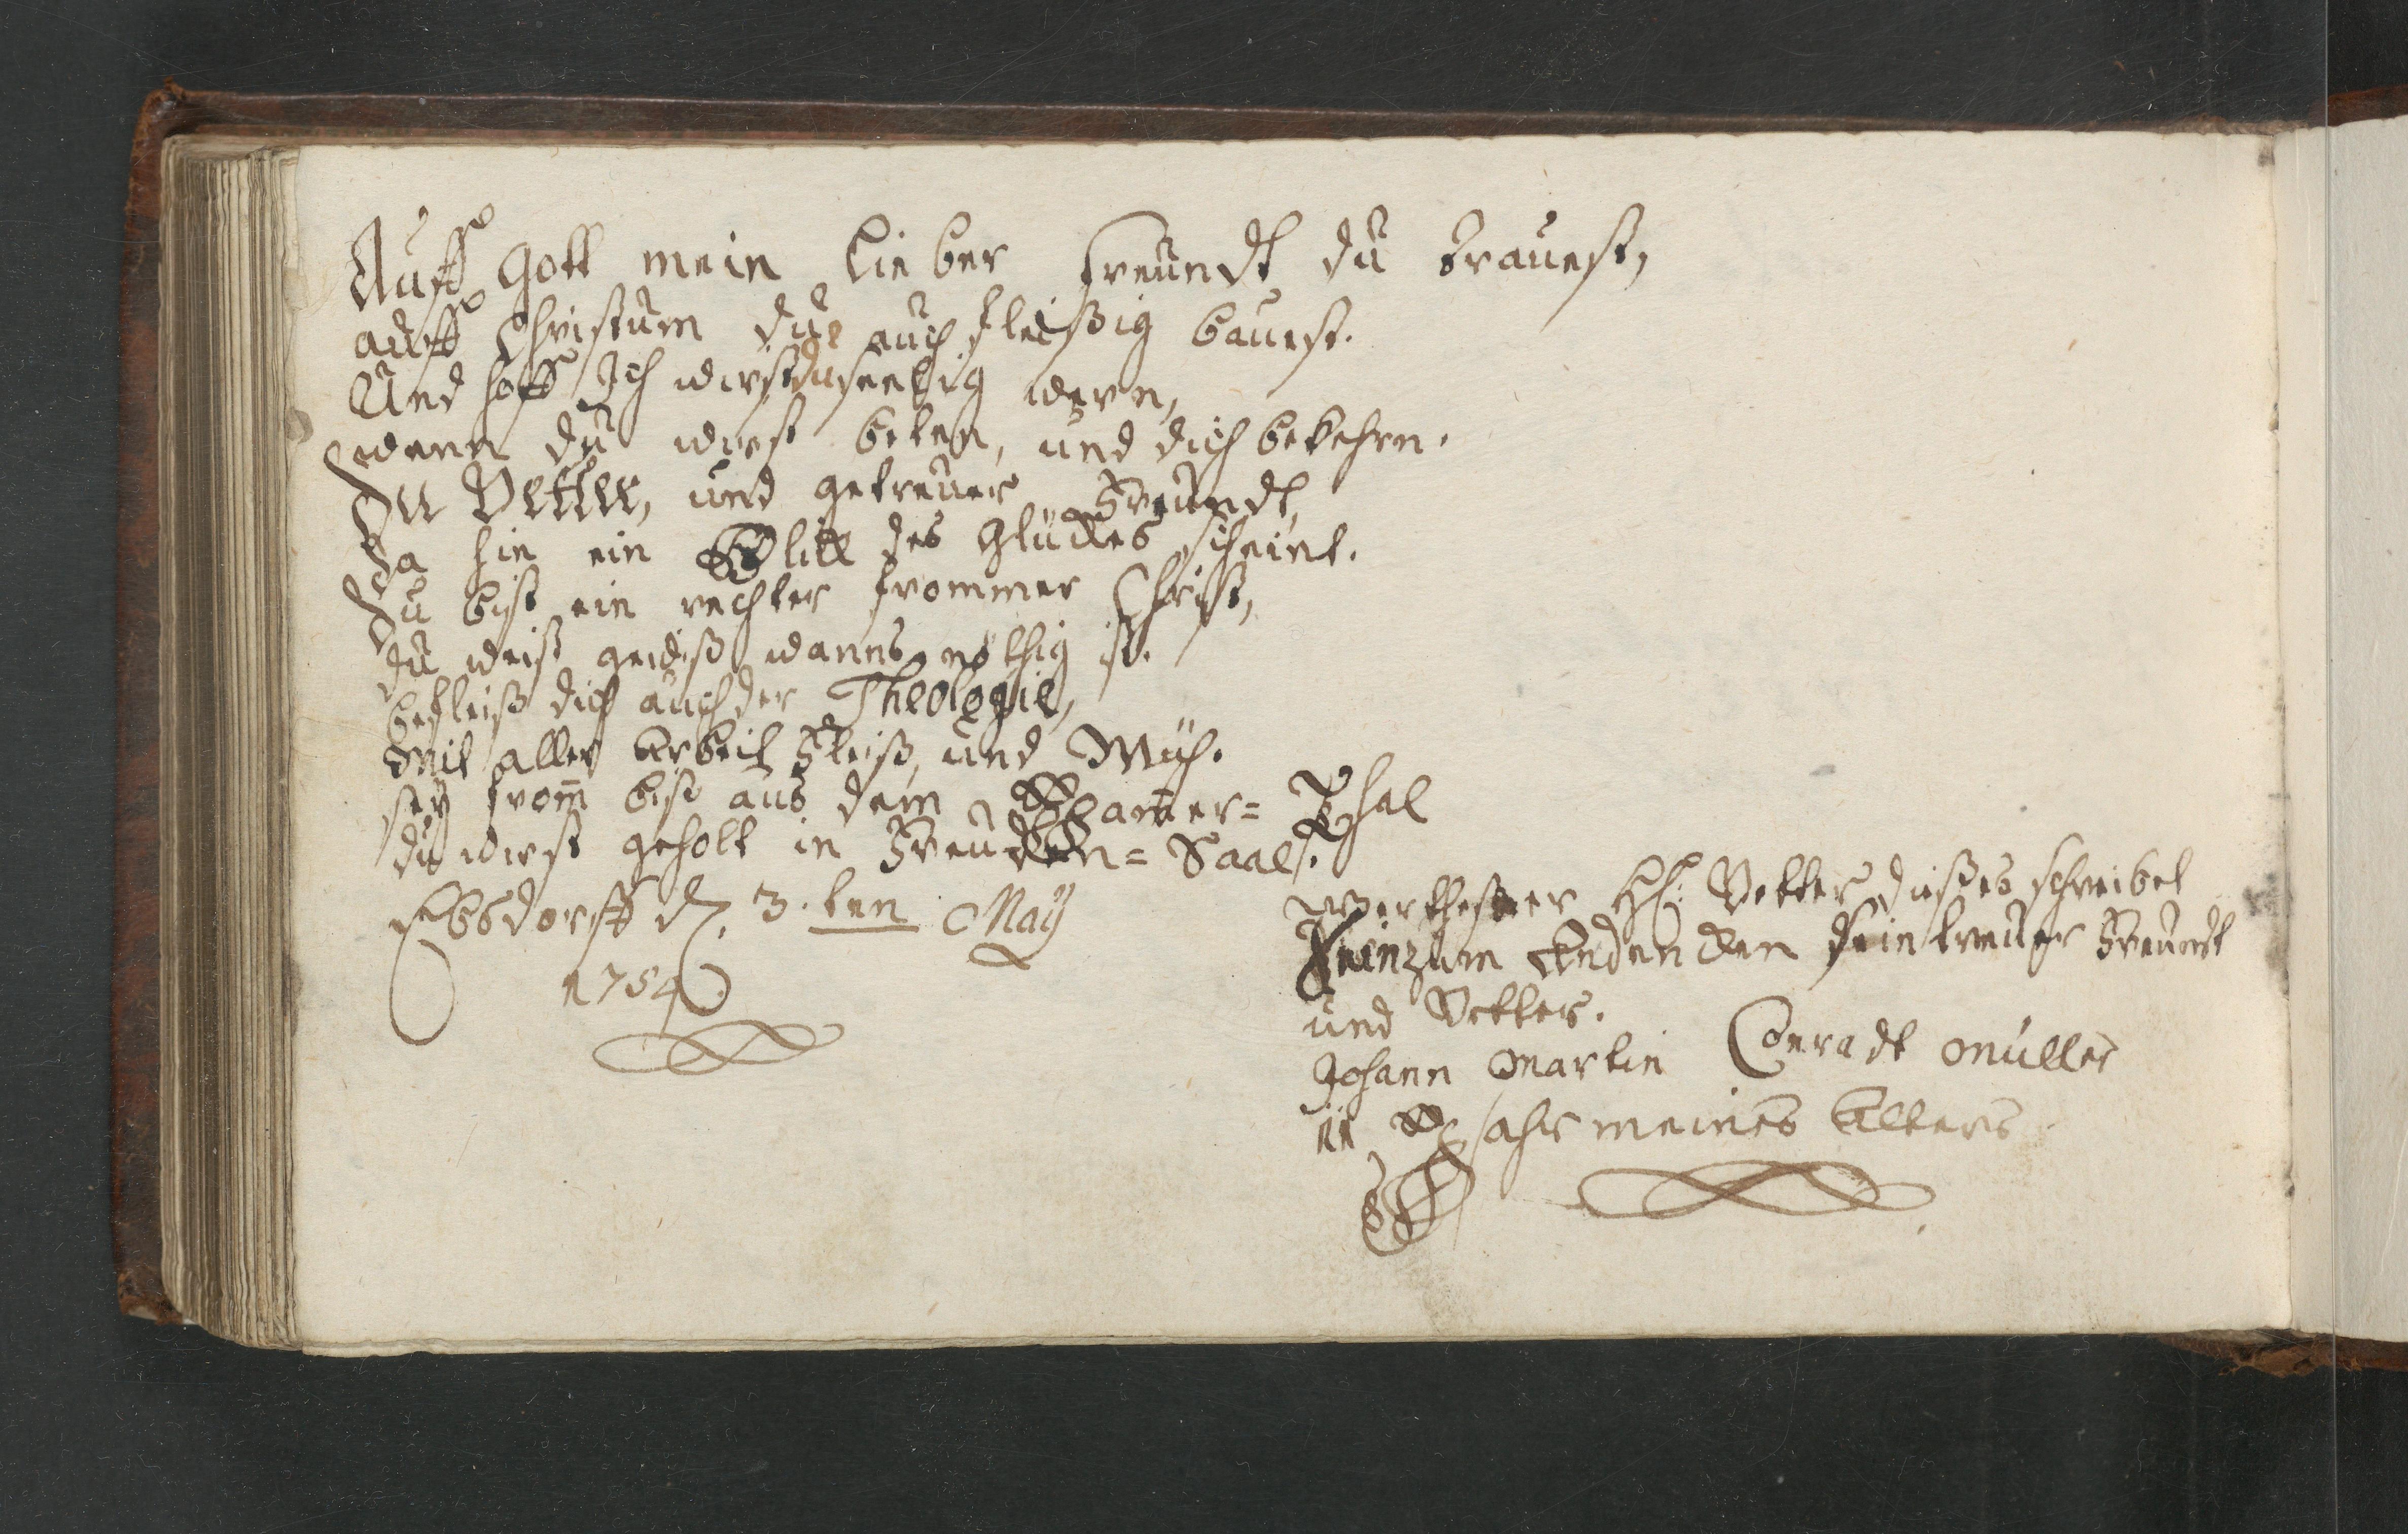 Auff Gott mein lieber freundt du trauest,
auff Christum du auch fleißig bauest.
Und hoff Ich wirst du seelig wern,
wenn du wirst beten, und dich bekehrn.
Du Vetter, und getreuer Freundt,
Da hie ein Blick des Glückes scheint.
Du bist ein rechter frommer Christ,
du weist gewiß wanns nöthig ist.
befleiß dich auch der Theologie,
Mit aller Arbeit Fleiß, und Müh.
sey from̄ bist aus dem Jamer= Thal
du wirst geholt in Freuden= Saal.
Ebsdorff d. 3.ten May
1754.
Werthester H. Vetter dießes schreibet
Ihm zum Andencken sein treuer Freundt
und Vetter.
Johann Martin Conradt Müller
11 Jahr meines Alters